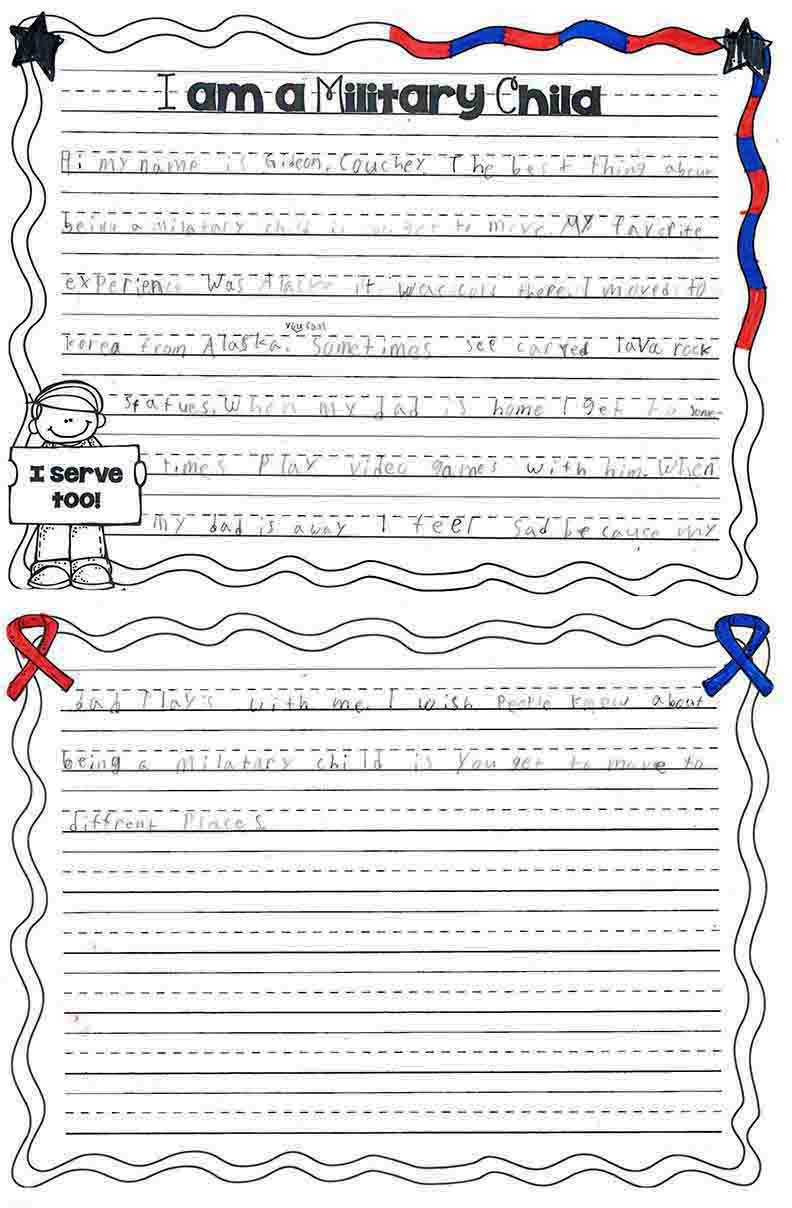 I am a Military Child
Hi my name is Gideon. Couchey. The best thing about
being a milatary child is you get to move. My favorite
experience was Alaska it was cold there. I moved to
you can
Korea from Alaska. Sometimes see carved lava rock
statues. When my dad is home I get to some-
I serve
too!
times Play video games with him. When
my dad is away I feel sad because my
dad Plays with me. I wish People know about
being a milatary child is you get to move to
diffrent Places